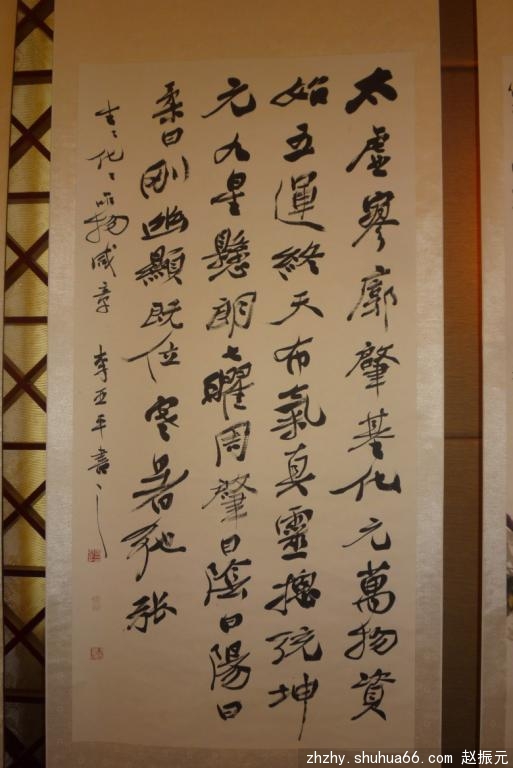 太虛寥廓肇基化元萬物資
始五運終天布氣真靈揔統坤
元九星懸朗七曜周肇曰陰曰陽曰
柔曰剛幽顯既位寒暑弛張
生々化々品物咸章 李亚平書
zhzhy.shuhua66.com 赵振元